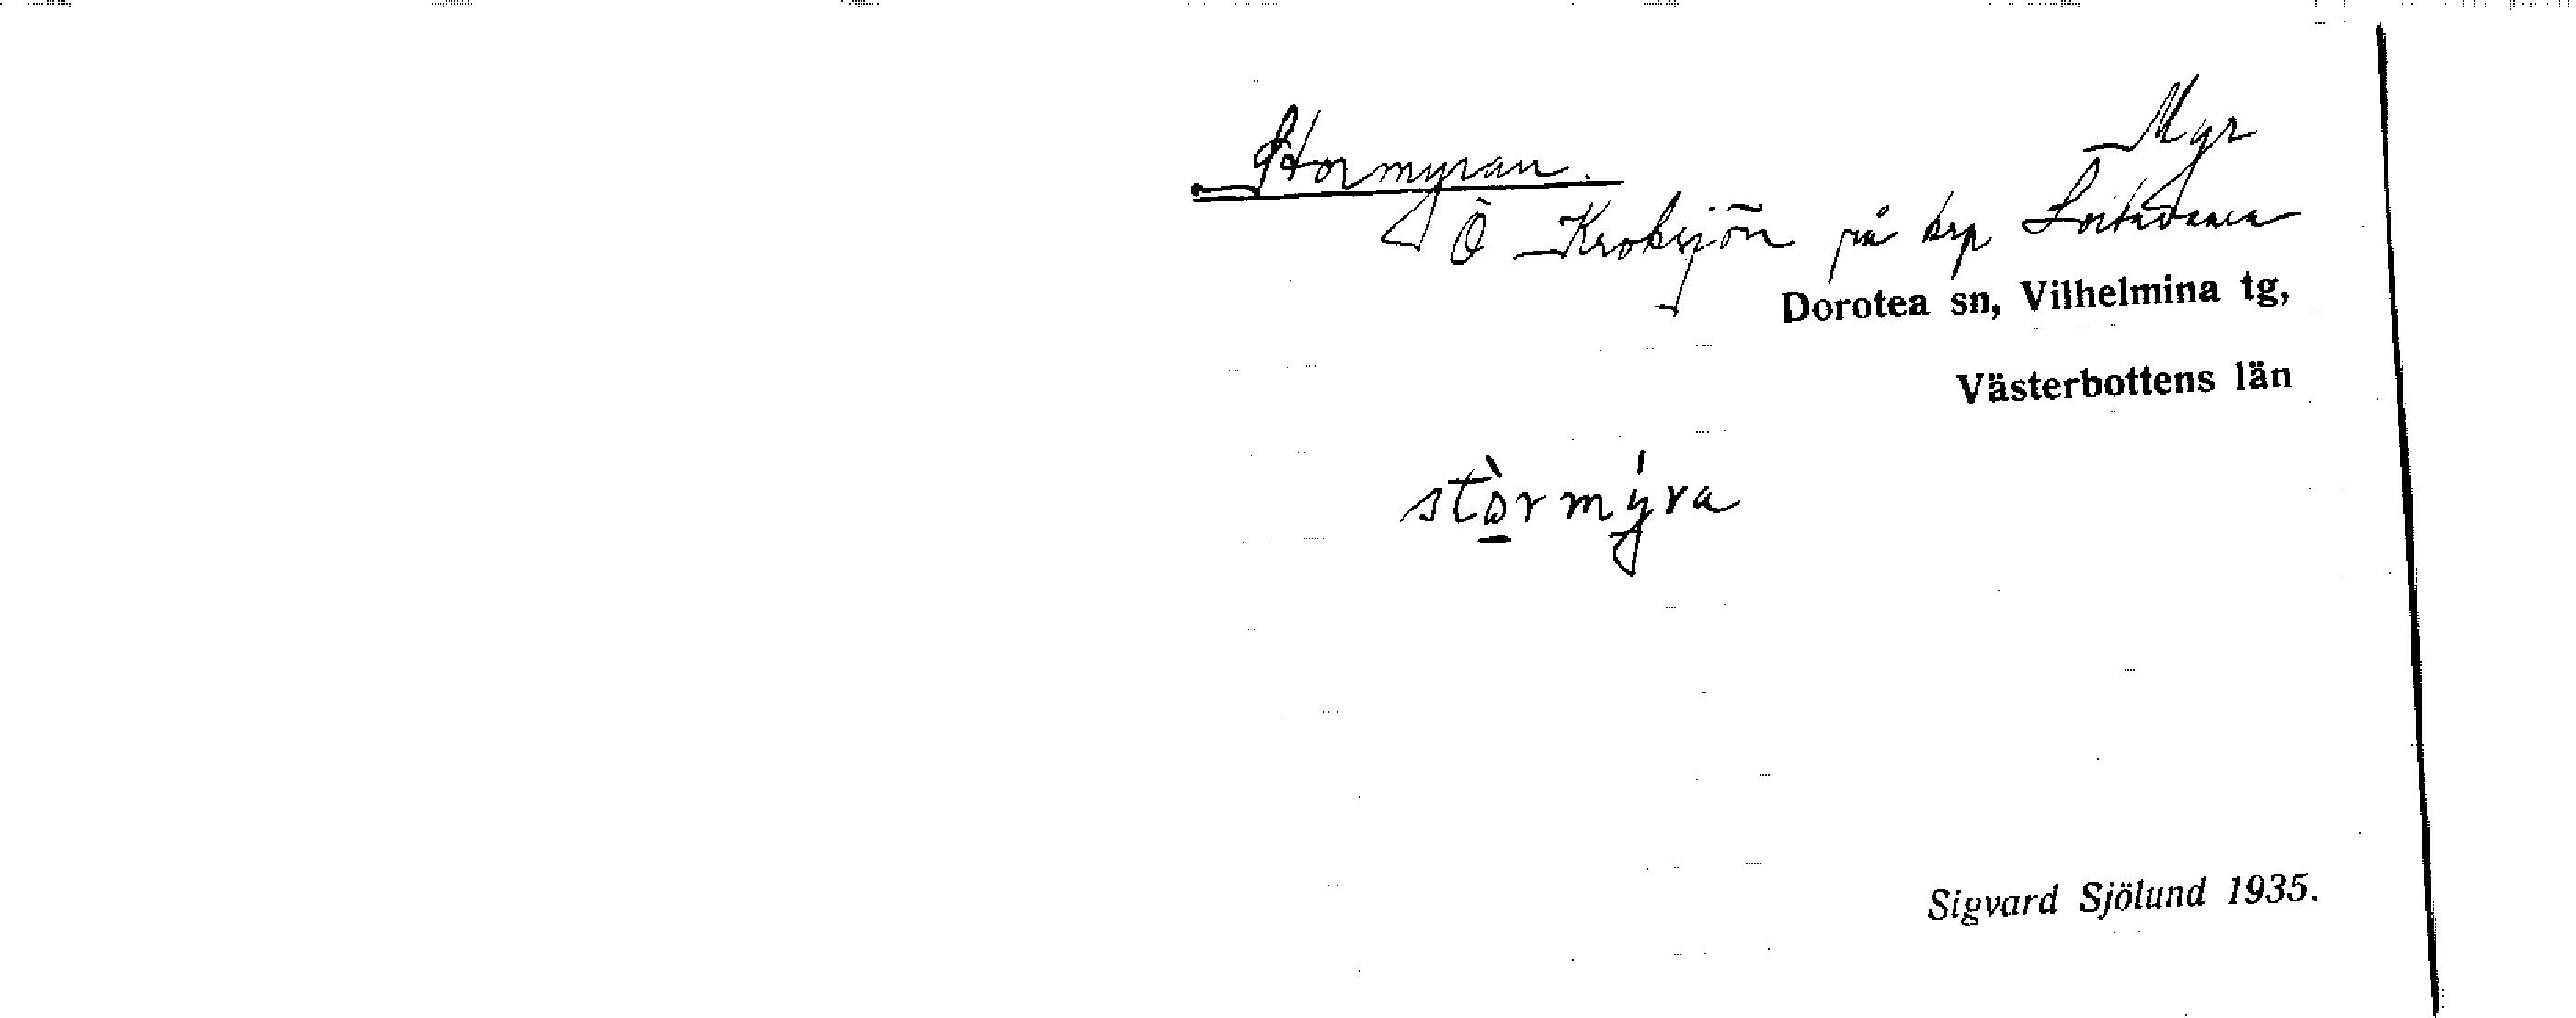 Stormyran.
Myr
Ö Kroksjön på krp
Dorotea sn, Vilhelmina tg,
Västerbottens län
stòrmýra
Sigvard Sjölund 1935.